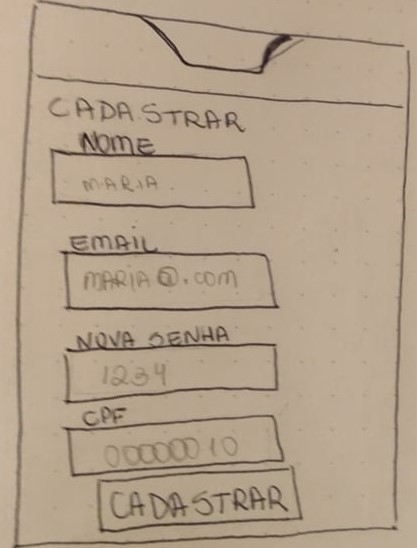 CADASTRAR
NOME
MARIA
EMAIL
MARIA@.COM
NOVA SENHA
1234
CPF
00000010
CADASTRAR